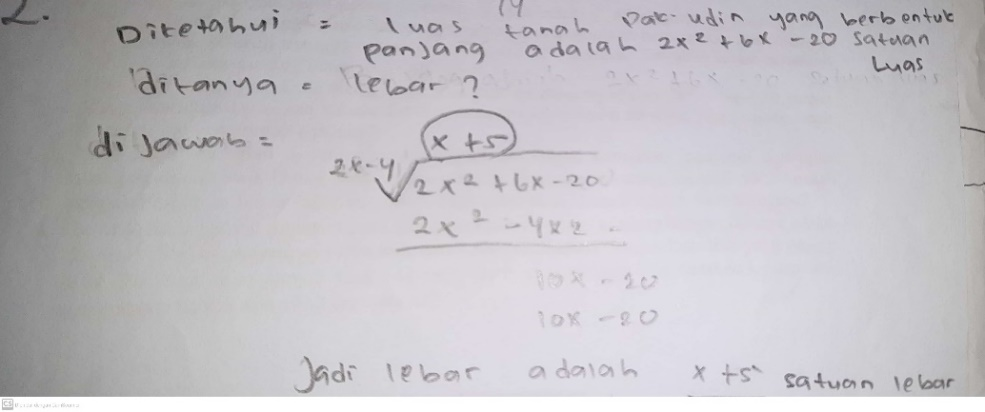 2.
Diketahui = luas tanah Pak udin yang berbentuk
panjang adalah 2x² + 6x - 20 satuan
Luas
ditanya = lebar ?
di Jawab =
x + 5
2x-4 √ 2x² + 6x - 20
2x² - 4x2
10x - 20
10x - 20
Jadi lebar adalah x + 5 satuan lebar